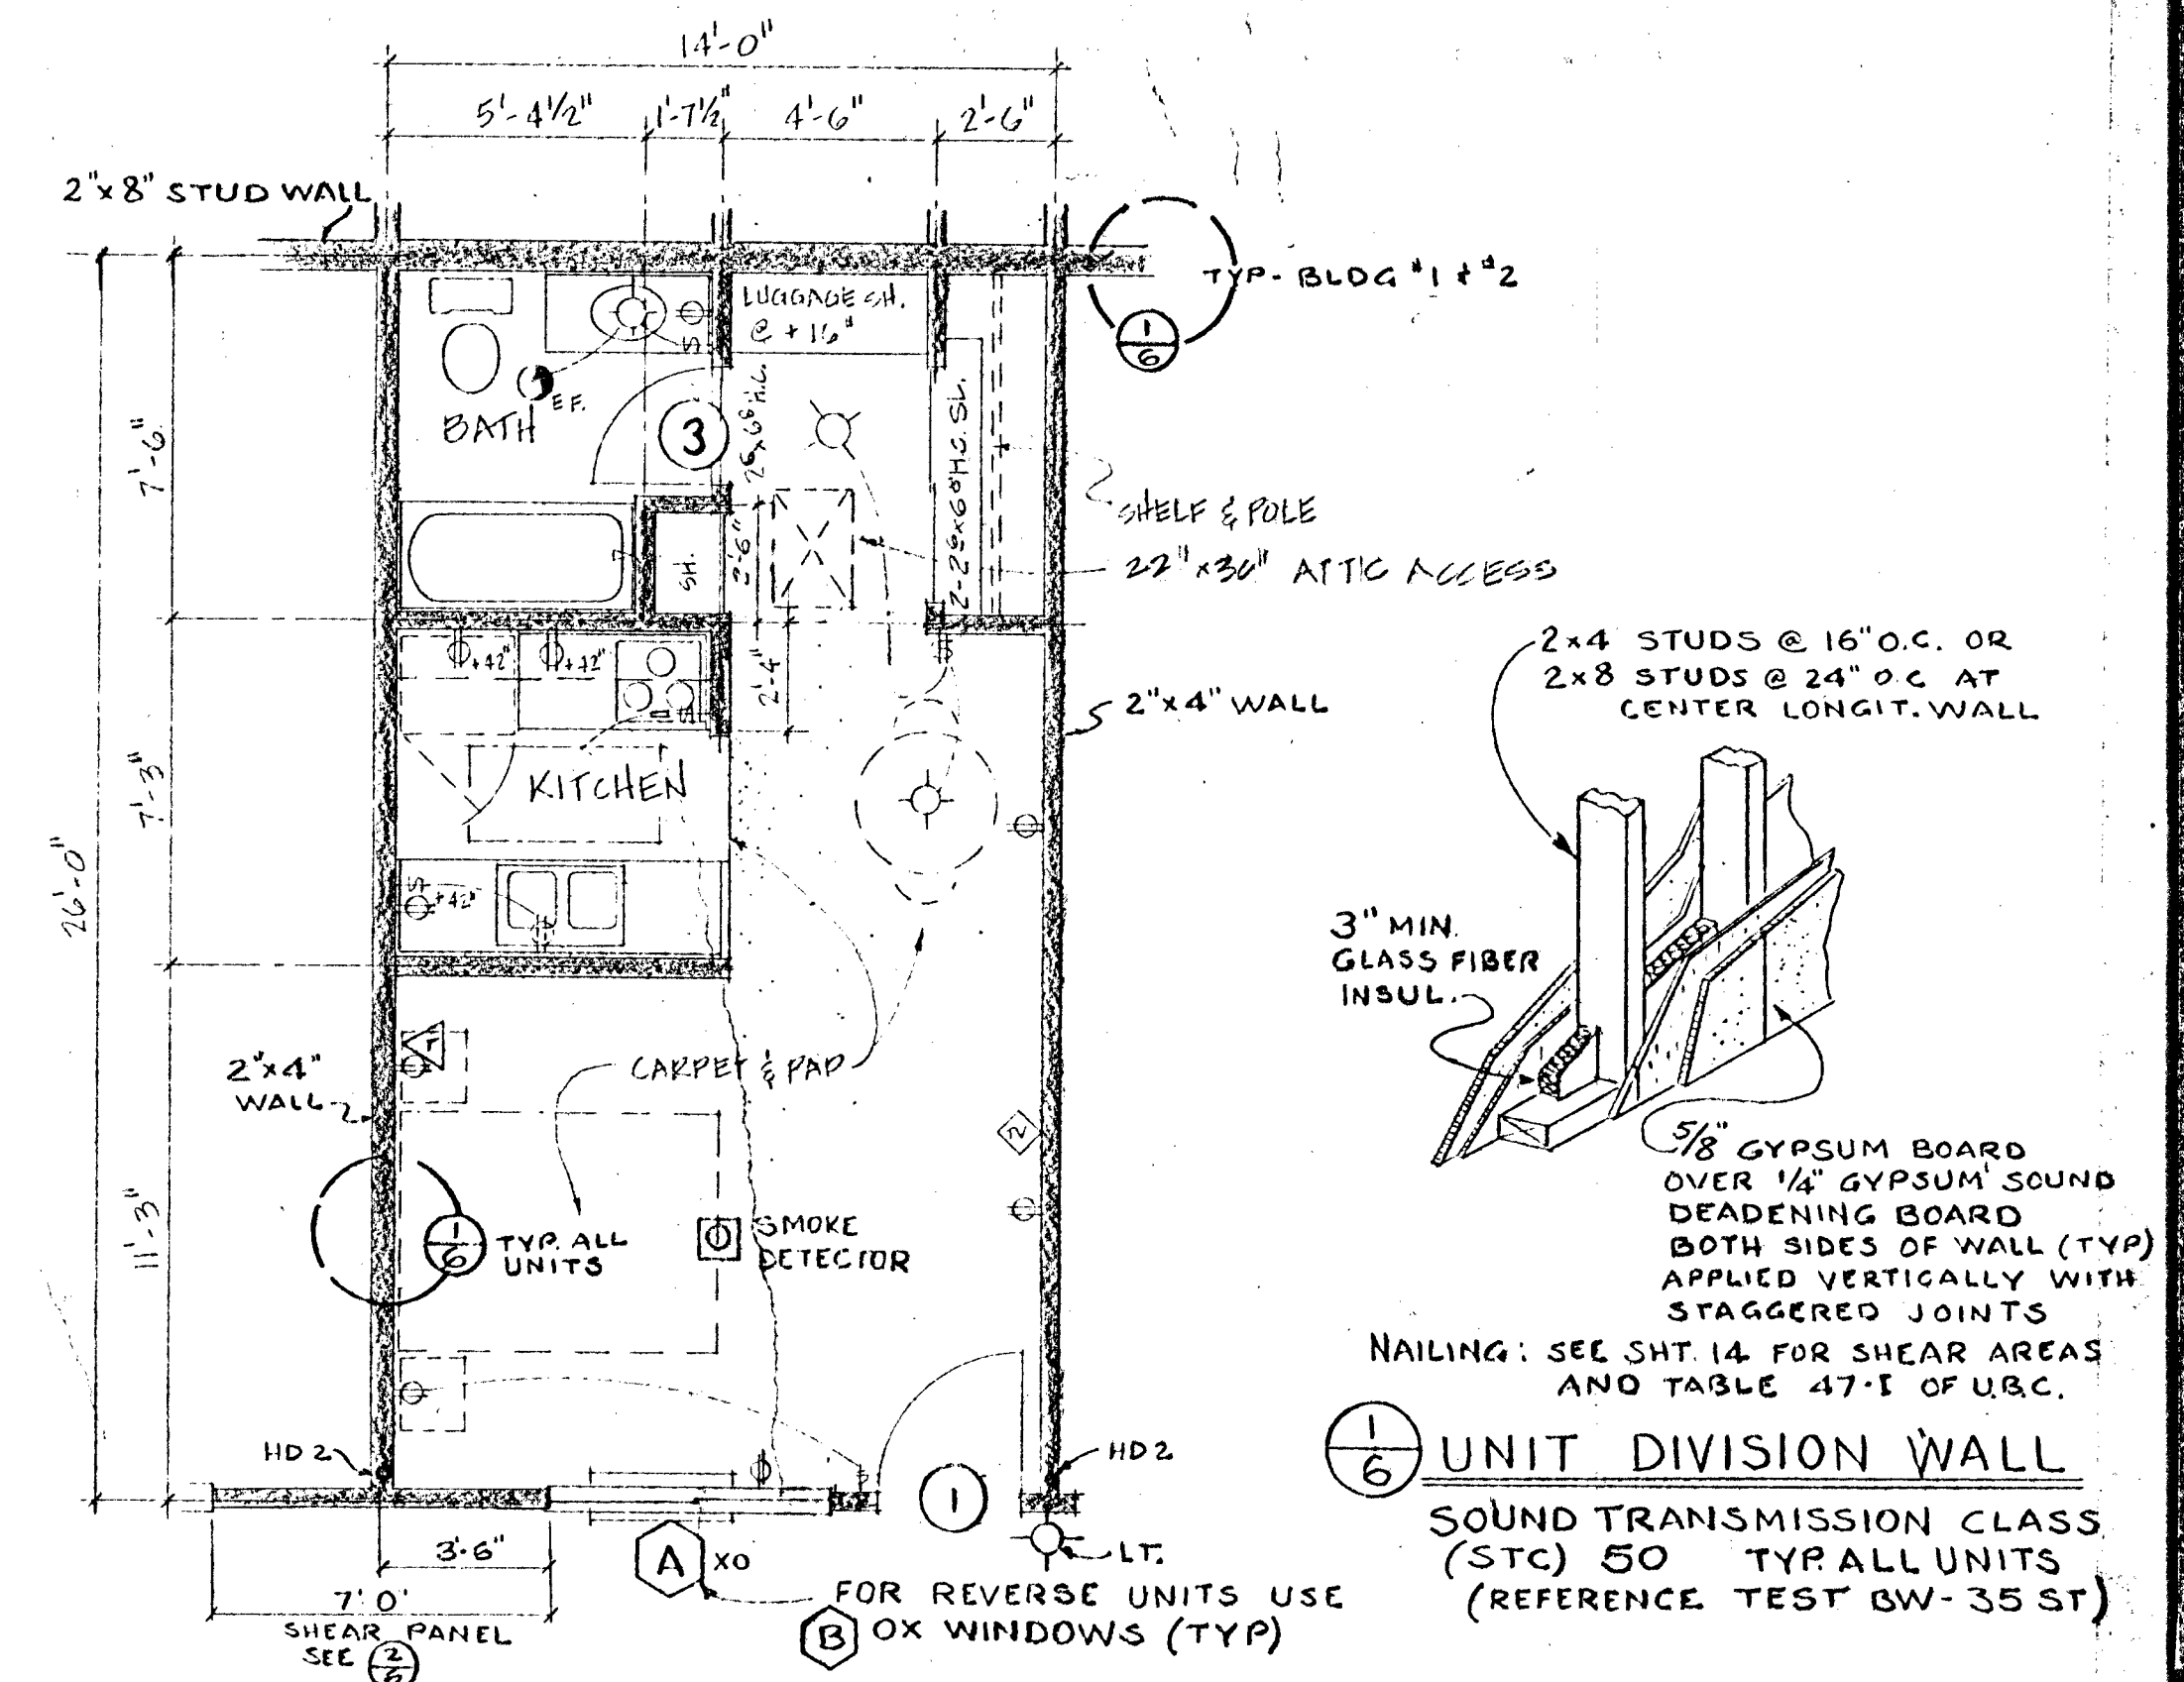 14'-0"
5'-4½" 1'-7½" 4'-6" 2'-6"
2"x8" STUD WALL
TYP- BLDG #1 & #2
1
6
LUGGAGE SH.
@ +16"
S
E.F.
BATH
3
26x68 H.C.
2-26x68 H.C. SL.
7'-6"
SH.
2'-6"
SHELF & POLE
22"x30" ATTIC ACCESS
+42" +42"
S
2'-4"
2"x4" WALL
KITCHEN
7'-3"
26'-0"
S
+42"
CARPET & PAD
2"x4"
WALL
2
11'-3"
1
6
TYP. ALL
UNITS
SMOKE
DETECTOR
HD 2
HD 2
S
1
3'-6"
A XO
LT.
7'-0"
SHEAR PANEL
SEE 2
6
FOR REVERSE UNITS USE
B OX WINDOWS (TYP)
2x4 STUDS @ 16" O.C. OR
2x8 STUDS @ 24" O.C AT
CENTER LONGIT. WALL
3" MIN.
GLASS FIBER
INSUL.
5/8" GYPSUM BOARD
OVER 1/4" GYPSUM SOUND
DEADENING BOARD
BOTH SIDES OF WALL (TYP)
APPLIED VERTICALLY WITH
STAGGERED JOINTS
NAILING: SEE SHT. 14 FOR SHEAR AREAS
AND TABLE 47-I OF U.B.C.
1
6
UNIT DIVISION WALL
SOUND TRANSMISSION CLASS
(STC) 50 TYP. ALL UNITS
(REFERENCE TEST BW-35 ST)